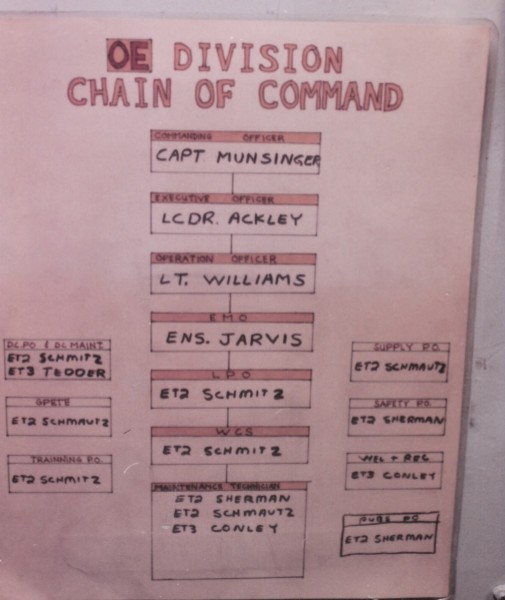 OE DIVISION
CHAIN OF COMMAND
COMMANDING OFFICER
CAPT MUNSINGER
EXECUTIVE OFFICER
LCDR. ACKLEY
OPERATION OFFICER
LT. WILLIAMS
EMO
ENS. JARVIS
LPO
ET2 SCHMITZ
WCS
ET2 SCHMITZ
MAINTENANCE TECHNICIAN
ET2 SHERMAN
ET2 SCHMAUTZ
ET3 CONLEY
DC.PO & DC MAINT.
ET2 SCHMITZ
ET3 TEDDER
GPETE
ET2 SCHMAUTZ
TRAINNING P.O.
ET2 SCHMITZ
SUPPLY P.O.
ET2 SCHMAUTZ
SAFETY P.O.
ET2 SHERMAN
WEL + REC
ET3 CONLEY
PUBS PO
ET2 SHERMAN